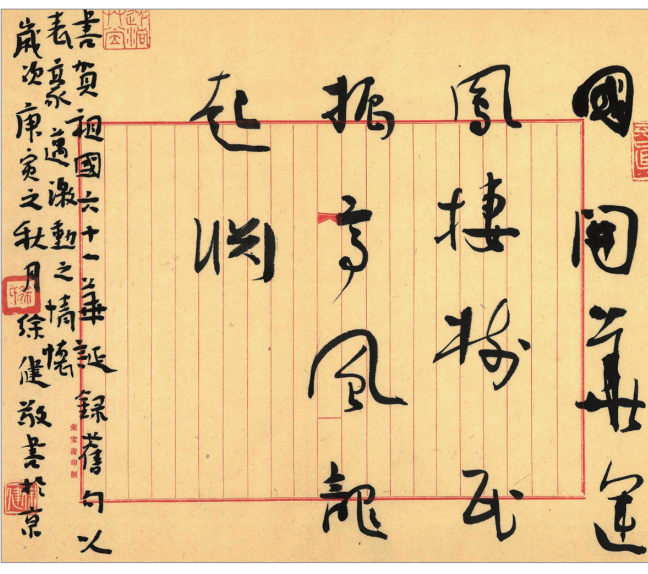 國開華運
鳳棲樹民
振高風龍
起淵
書賀祖國六十一華誕錄舊句以
表豪邁激動之情懷
歲次庚寅之秋月徐健敬書於京